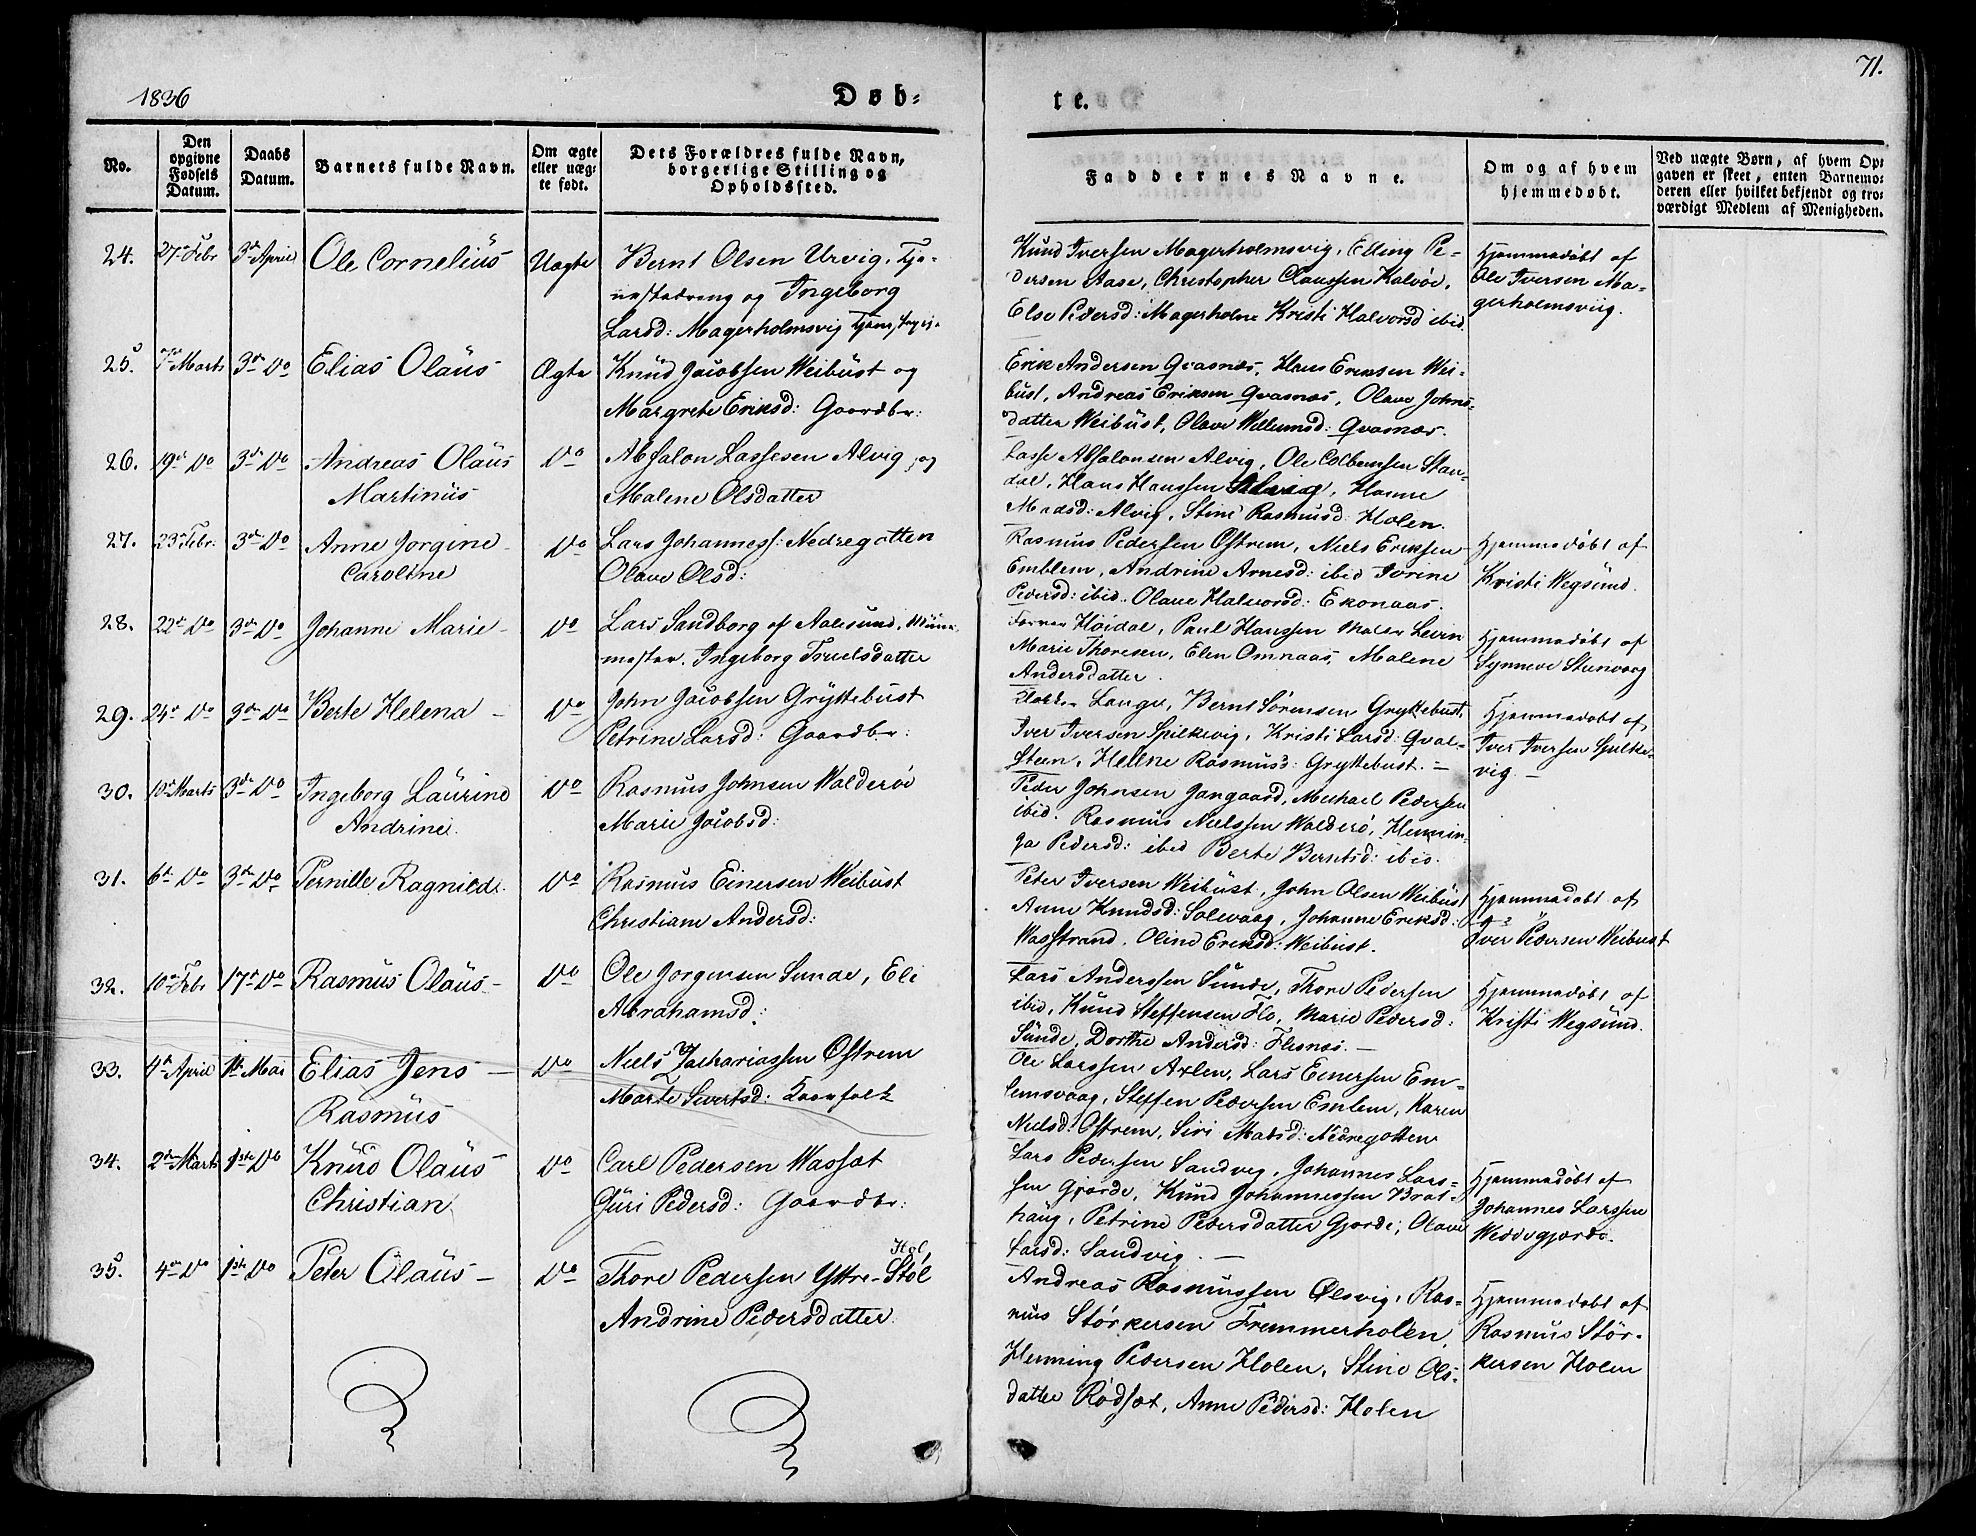 1836
Døb-
te.
71.
No.
Den opgivne Fødsels Datum.
Daabs Datum.
Barnets fulde Navn.
Om ægte eller uæg-te født.
Dets Forældres fulde Navn, borgerlige Stilling og Opholdssted.
Faddernes Navne.
Om og af hvem hjemmedøbt.
Ved uægte Børn, af hvem Op-
gaven er skeet, enten Barnemo-
deren eller hvilket bekjendt og tro-
værdigt Medlem af Menigheden.
24. 27de Febr 3die April Ole Cornelius Uægte Bernt Olsen Urvig, Tje-
nestedreng og Ingeborg
Larsd: Magerholmsvig
Knud Iversen Magerholmsvig, Elling Pe-
dersen Aase, Christopher Claussen Kalvøe,
Else Pedersd: Magerholm Kristi Halvorsd ibid
Hjemmedøbt af
Ole Iversen Ma-
gerholmsviig.
25. 7de Marts 3die Do Elias Olaus Ægte Knud Jacobsen Weibust og
Margrete Eriksd: Gaardbr:
Erik Andersen Qvasnes, Hans Eriksen Wei-
bust, Andreas Eriksen Qvasnæs, Olave Johns-
datter Weibust, Olave Willumsd: Qvasnæs.
26. 19de Do 3die Do Andreas Olaus
Martinus Do Absalon Lassesen Alvig, og
Malene Olsdatter
Lasse Absalonsen Alvig, Ole Colbensen Stan-
dal, Hans Hanssen, Hanne
Madsd: Alvig, Stine Rasmusd: Holen.
27. 23 Febr. 3die Do Anne Jorgine
Caroline Do Lars Johanness: Nedregotten
Olave Olsd:
Rasmus Pedersen Ostrem, Niels Eriksen
Emblem, Andrine Arnesd: ibid Iverine
Pedersd: ibid. Olave Halvorsd: Ekonaas.
Hjemmedøbt af
Kristi Wegsund.
28. 22de Do 3die Do Johanne Marie Do Lars Sandborg af Aalesund,
Ingeborg Truelsdatter
Høidal, Paul Hanssen Levin
Marie Thoresen, Elen Omnaas, Malene
Andersdatter
Hjemmedøbt af
Synneve Steenvaag
29. 24de Do 3die Do Berte Helena Do John Jacobsen Gryttebust
Petrine Larsd: Gaardbr:
Lange, Bernt Sørensen Gryttebust,
Iver Iversen Spilkevig, Kristi Larsd: Qval-
Steen, Helene Rasmusd: Gryttebust.
Hjemmedøbt af
Iver Iversen Spilke-
vig.
30. 10de Marts 3die Do Ingeborg Laurine
Andrine. Do Rasmus Johnsen Walderøe
Marie Jacobsd:
Peder Johnsen Gangaard, Michael Pedersen
ibid. Rasmus Nielssen Walderø, Hennin-
ga Pedersd: ibid Berte Berntsd: ibid.
31. 6te Do 3die Do Pernille Ragnilde. Do Rasmus Einersen Weibust
Christiane Andersd:
Peter Iversen Weibust, John Olsen Weibust
Anne Knudsd: Solevaag, Johanne Eriksd:
Wasstrand. Oline Eriksd: Weibust.
Hjemmedøbt af
Iver Pedersen Weibust
32. 10de Febr 17de Do Rasmus Olaus Do Ole Jorgensen Sunde, Eli
Abrahamsd:
Lars Anderssen Sunde, Thore Pedersen
ibid, Knud Steffensen Flo, Marie Pedersd:
Sunde, Dorthe Andersd: Flesnæs.
Hjemmedøbt af
Kristi Wegsund.
33. 4de April 1ste Mai Elias Jens
Rasmus Do Niels Zachariassen Ostrem
Marte Sivertsd:
Ole Larssen Axlen, Lars Einersen Em-
lemsvaag, Steffen Pedersen Emlem, Karen
Nielsd: Ostrem, Siri Matsd: Nedregotten
34. 2den Marts 1ste Do Knud Olaus
Christian Do Carl Pedersen Wassæt
Guri Pedersd: Gaardbr:
Lars Pedersen Sandvig, Johannes Lars-
sen Gjørde, Knud Johannessen Brat-
haug, Petrine Pedersdatter Gjørde, Olave
Larsd: Sandvig.
Hjemmedøbt af
Johannes Larssen
Weddegjorde.
35. 4de Do 1ste Do Peter Olaus Do Thore Pedersen Yttre-Støl
Hol
Andrine Pedersdatter
Andreas Rasmussen Ølsvig, Ras-
mus Størkersen Fremmerholen,
Henning Pedersen Holen, Stine Ols-
datter Rødsæt, Anne Pedersd: Holen
Hjemmedøbt af
Rasmus Stør-
kersen Holen